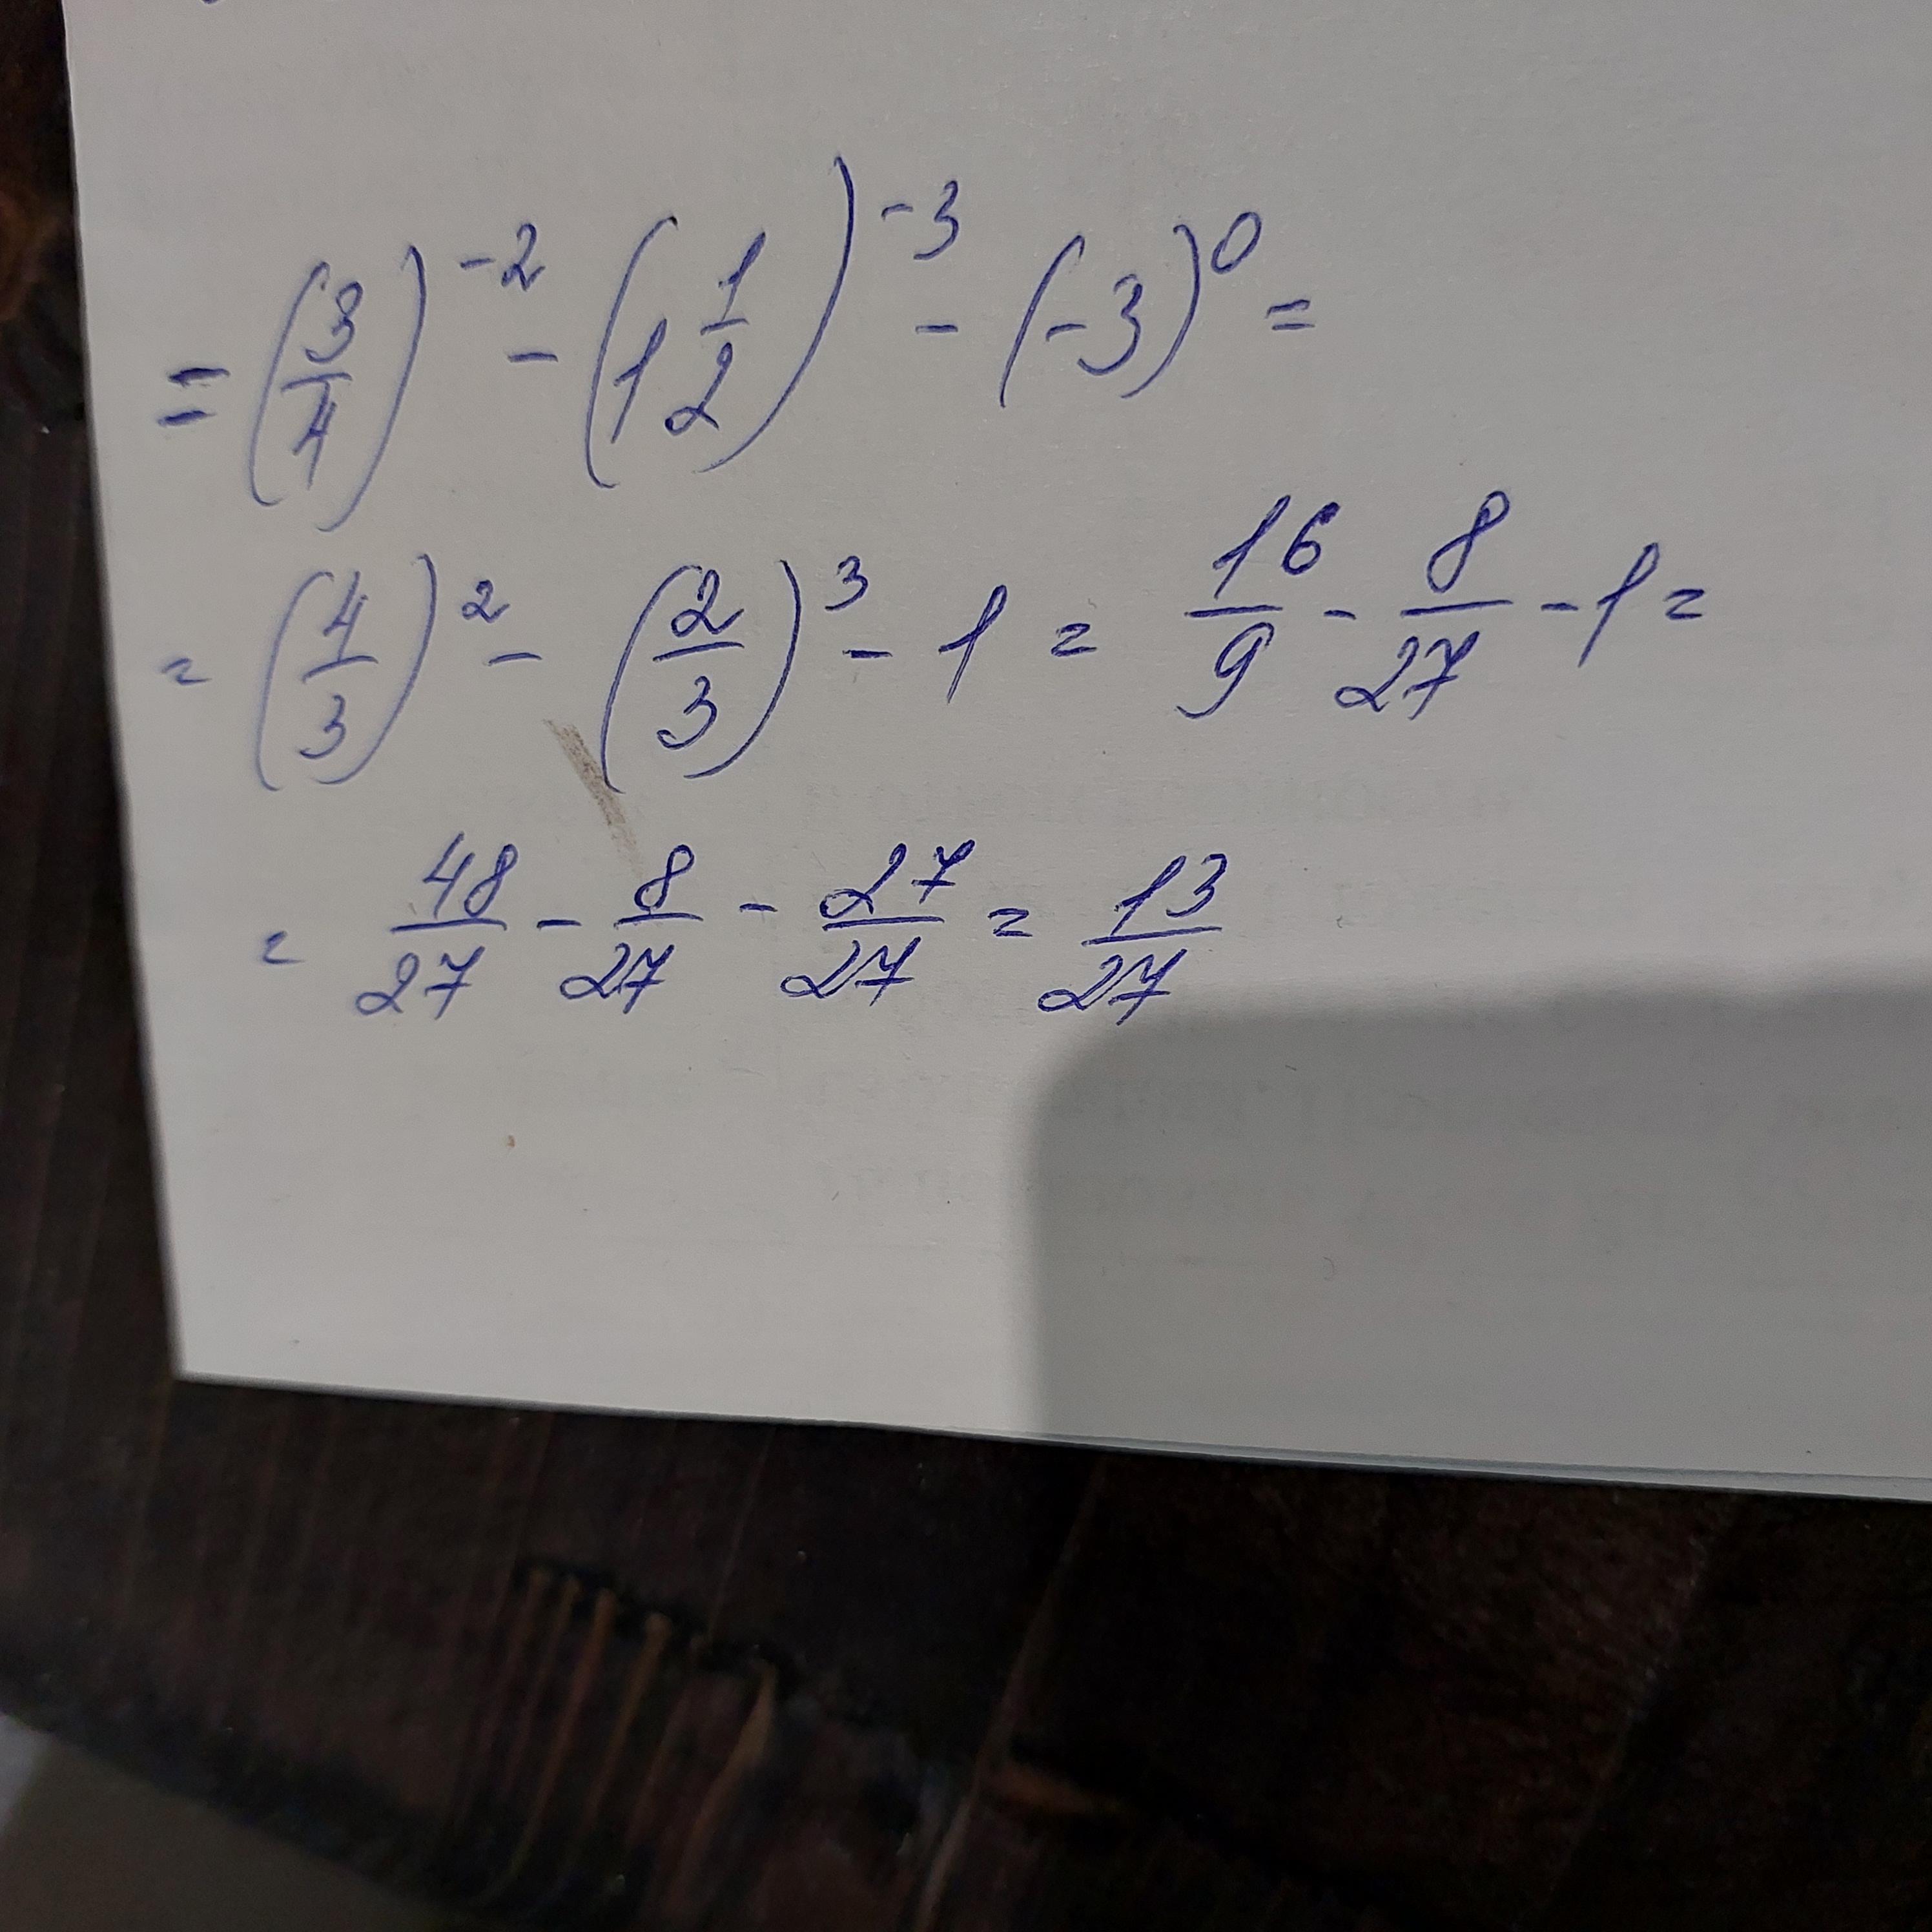 = (3/4)^-2 - (1 1/2)^-3 - (-3)^0 =
= (4/3)^2 - (2/3)^3 - 1 = 16/9 - 8/27 - 1 =
= 48/27 - 8/27 - 27/27 = 13/27